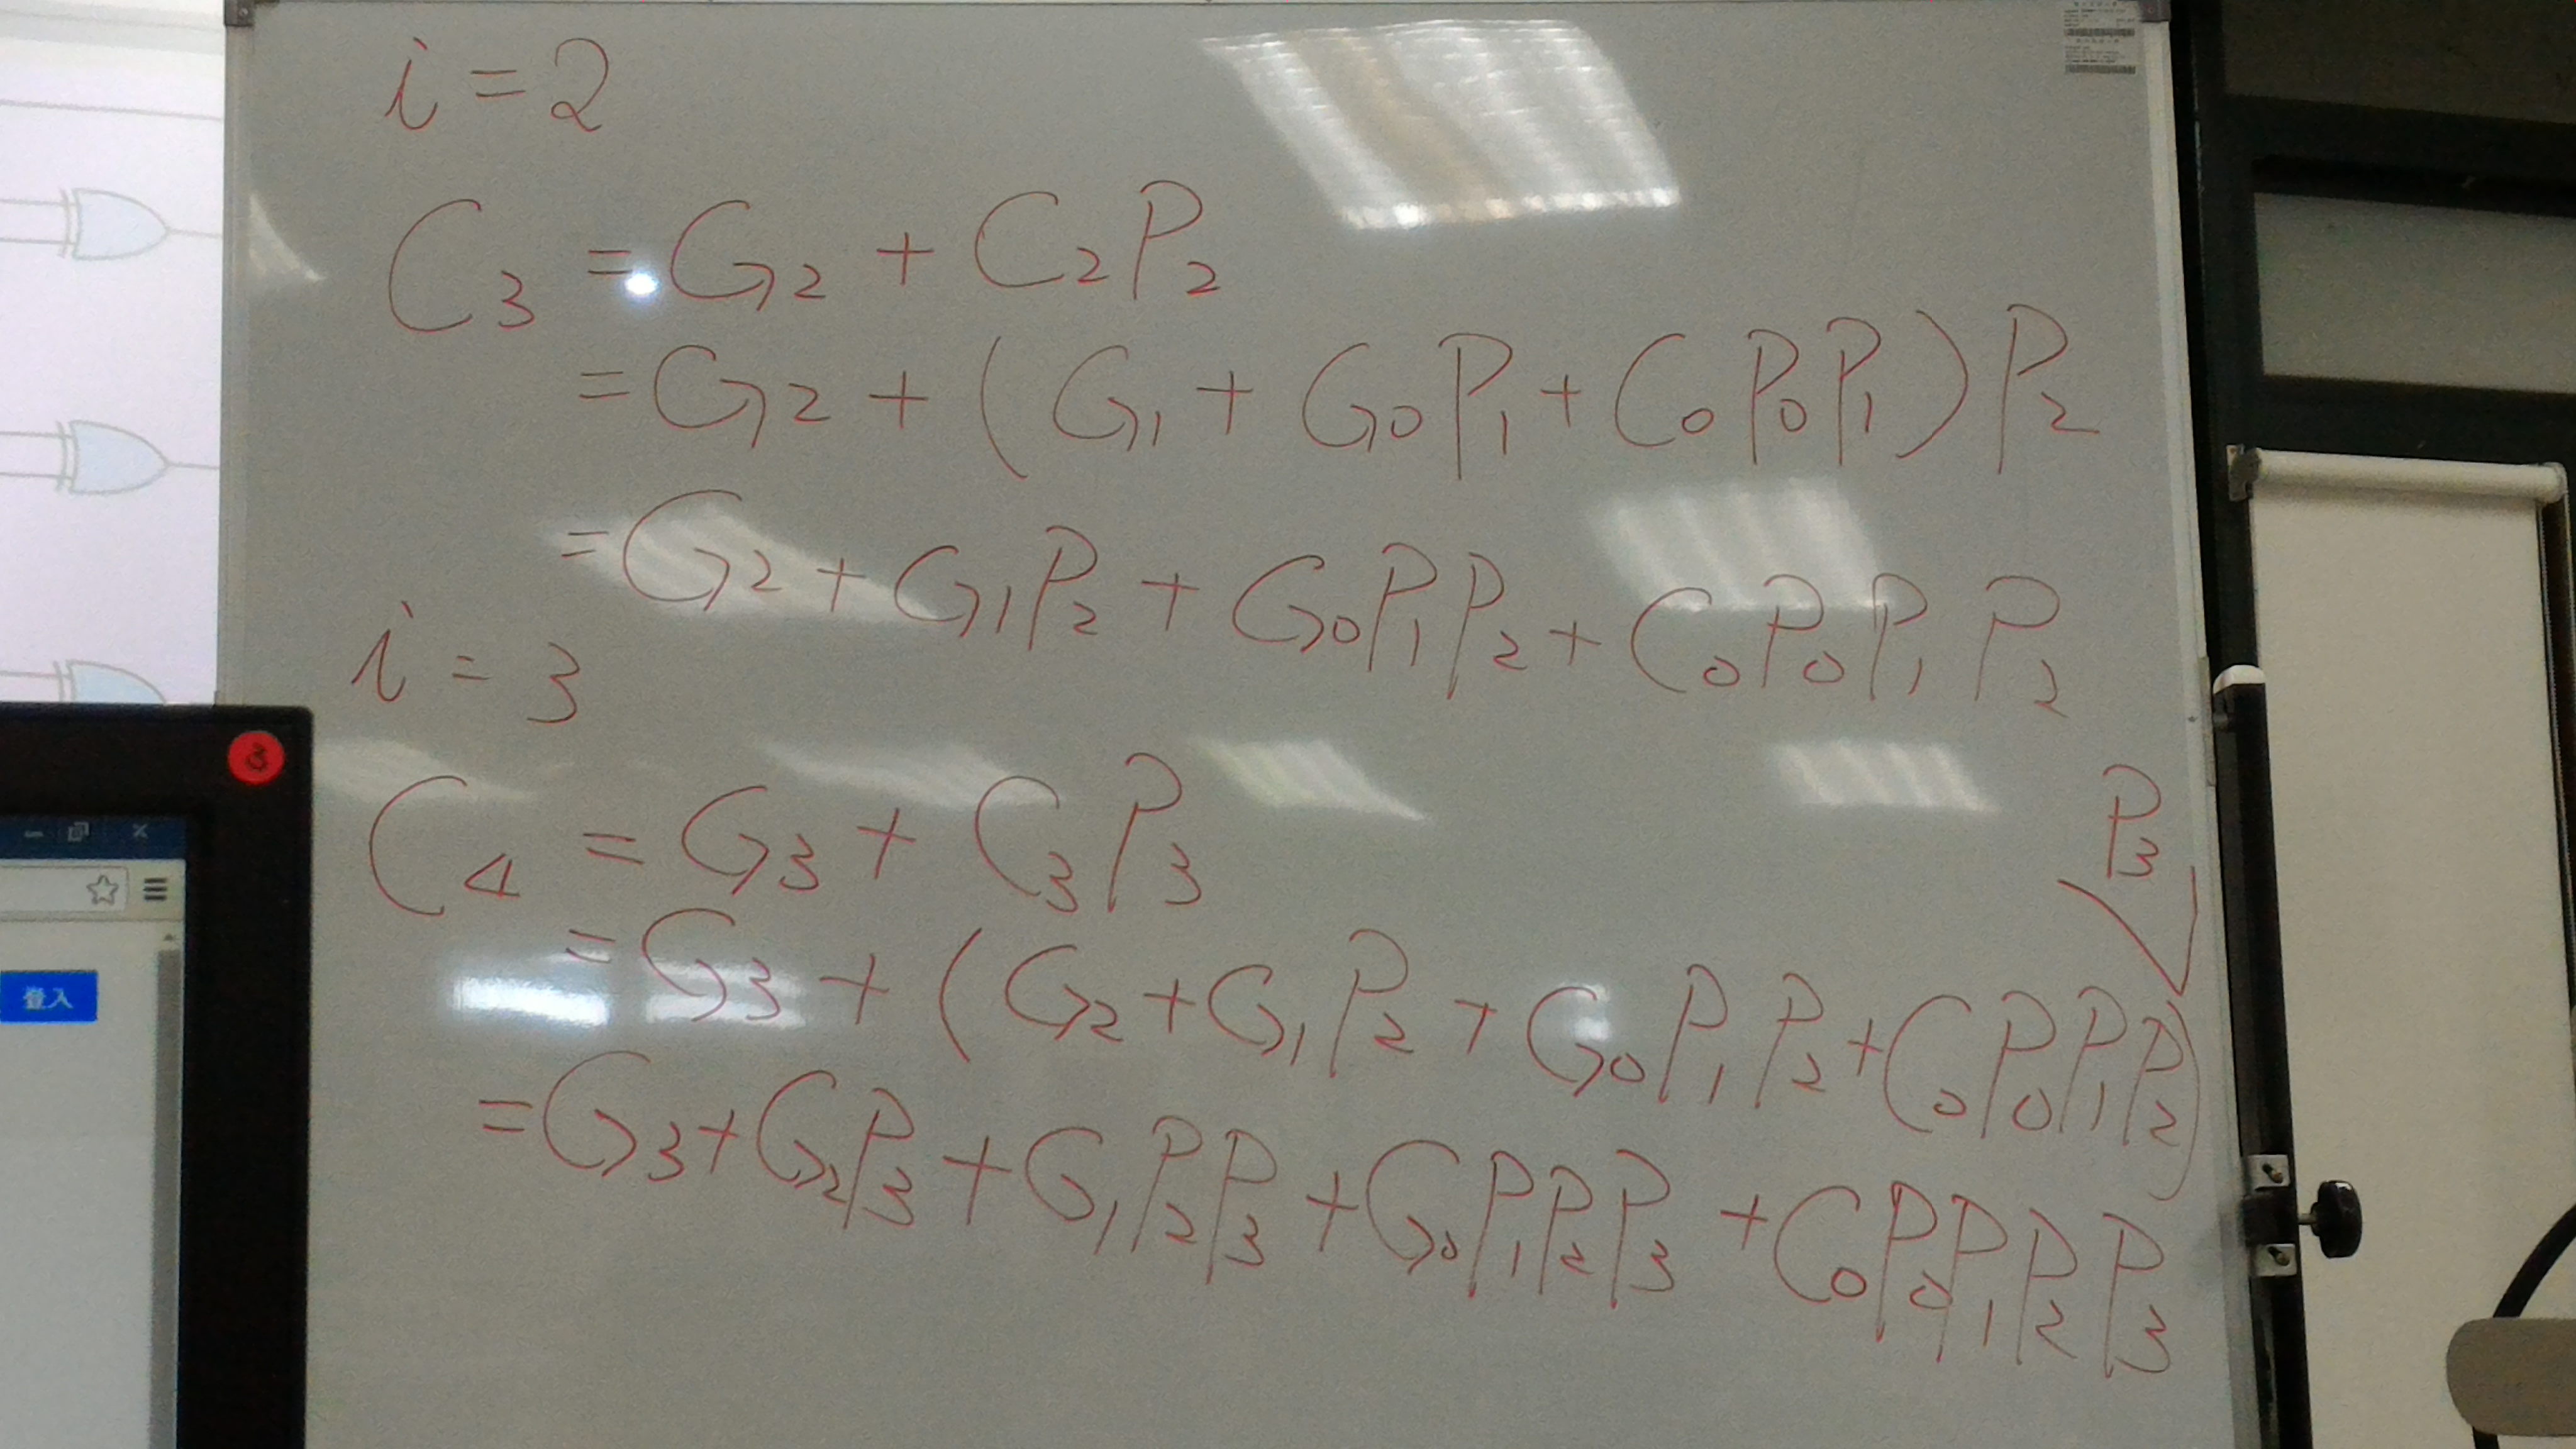 i = 2
C₃ = G₂ + C₂P₂
= G₂ + (G₁ + G₀P₁ + C₀P₀P₁)P₂
= G₂ + G₁P₂ + G₀P₁P₂ + C₀P₀P₁P₂
i = 3
C₄ = G₃ + C₃P₃
P₃
= G₃ + (G₂ + G₁P₂ + G₀P₁P₂ + C₀P₀P₁P₂)
= G₃ + G₂P₃ + G₁P₂P₃ + G₀P₁P₂P₃ + C₀P₀P₁P₂P₃
3
登入